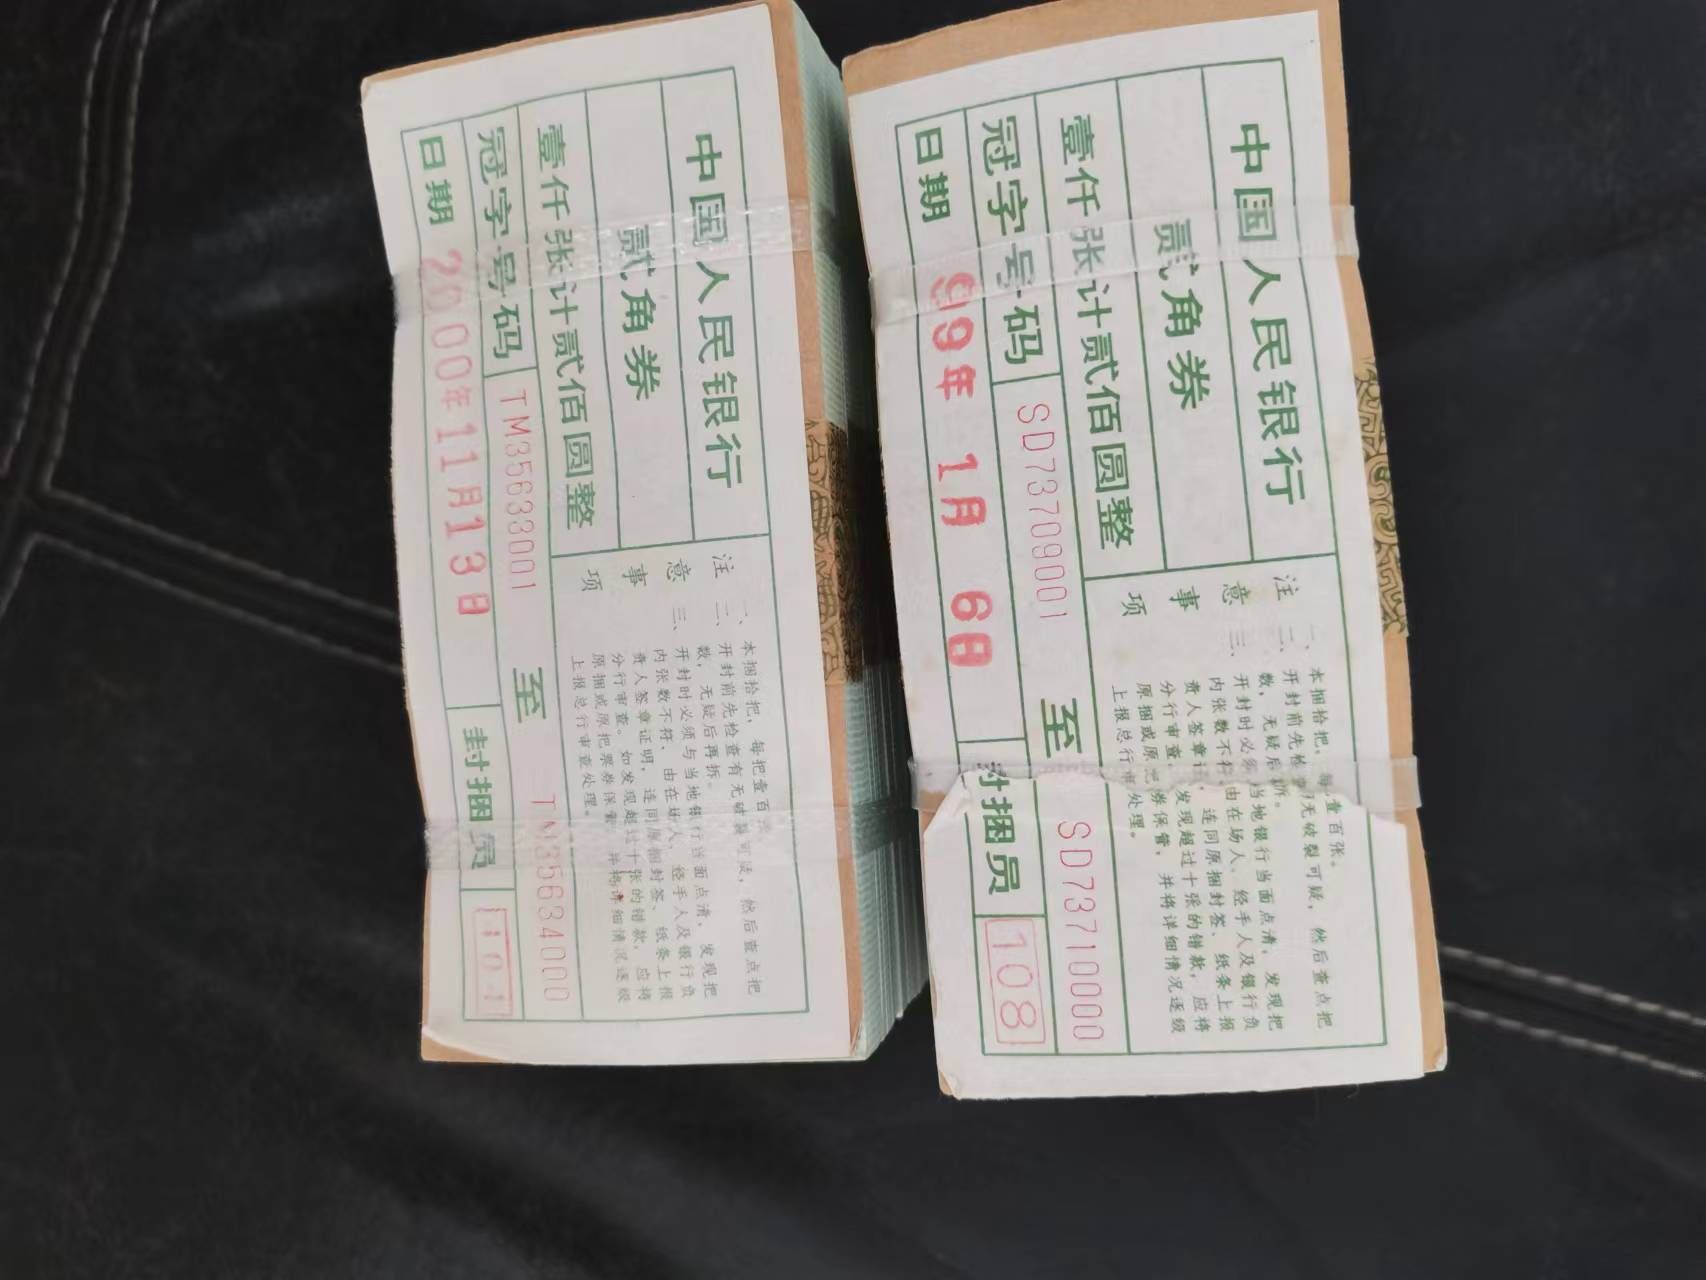 中国人民银行
贰角券
壹仟张计贰佰圆整
冠字号码 TM35633001 至 TN35634000
日期 2000年11月13日 封捆员 101
注意事项
一、本捆拾把，每把壹百
二、开封前先检查有无破裂可疑，然后查点把
数，无疑后再拆。
三、开封时必须与当地银行当面点清，发现把
内张数不符，由在场人、经手人及银行负
责人签章证明，连同原捆封签、纸条上报
分行审查。如发现超过十张的错款，应将
原捆或原把票券保管，并将详细情况逐级
上报总行审查处理。
中国人民银行
贰角券
壹仟张计贰佰圆整
冠字号码 SD73709001 至 SD73710000
日期 99年1月6日 封捆员 108
注意事项
一、本捆拾把，每 壹百张。
二、开封前先检 无破裂可疑，然后查点把
数，无疑后 拆。
三、开封时必须 当地银行当面点清，发现把
内张数不符 由在场人、经手人及银行负
责人签章证 连同原捆封签、纸条上报
分行审查。 发现超过十张的错款，应将
原捆或原 券保管，并将详细情况逐级
上报总行审 处理。